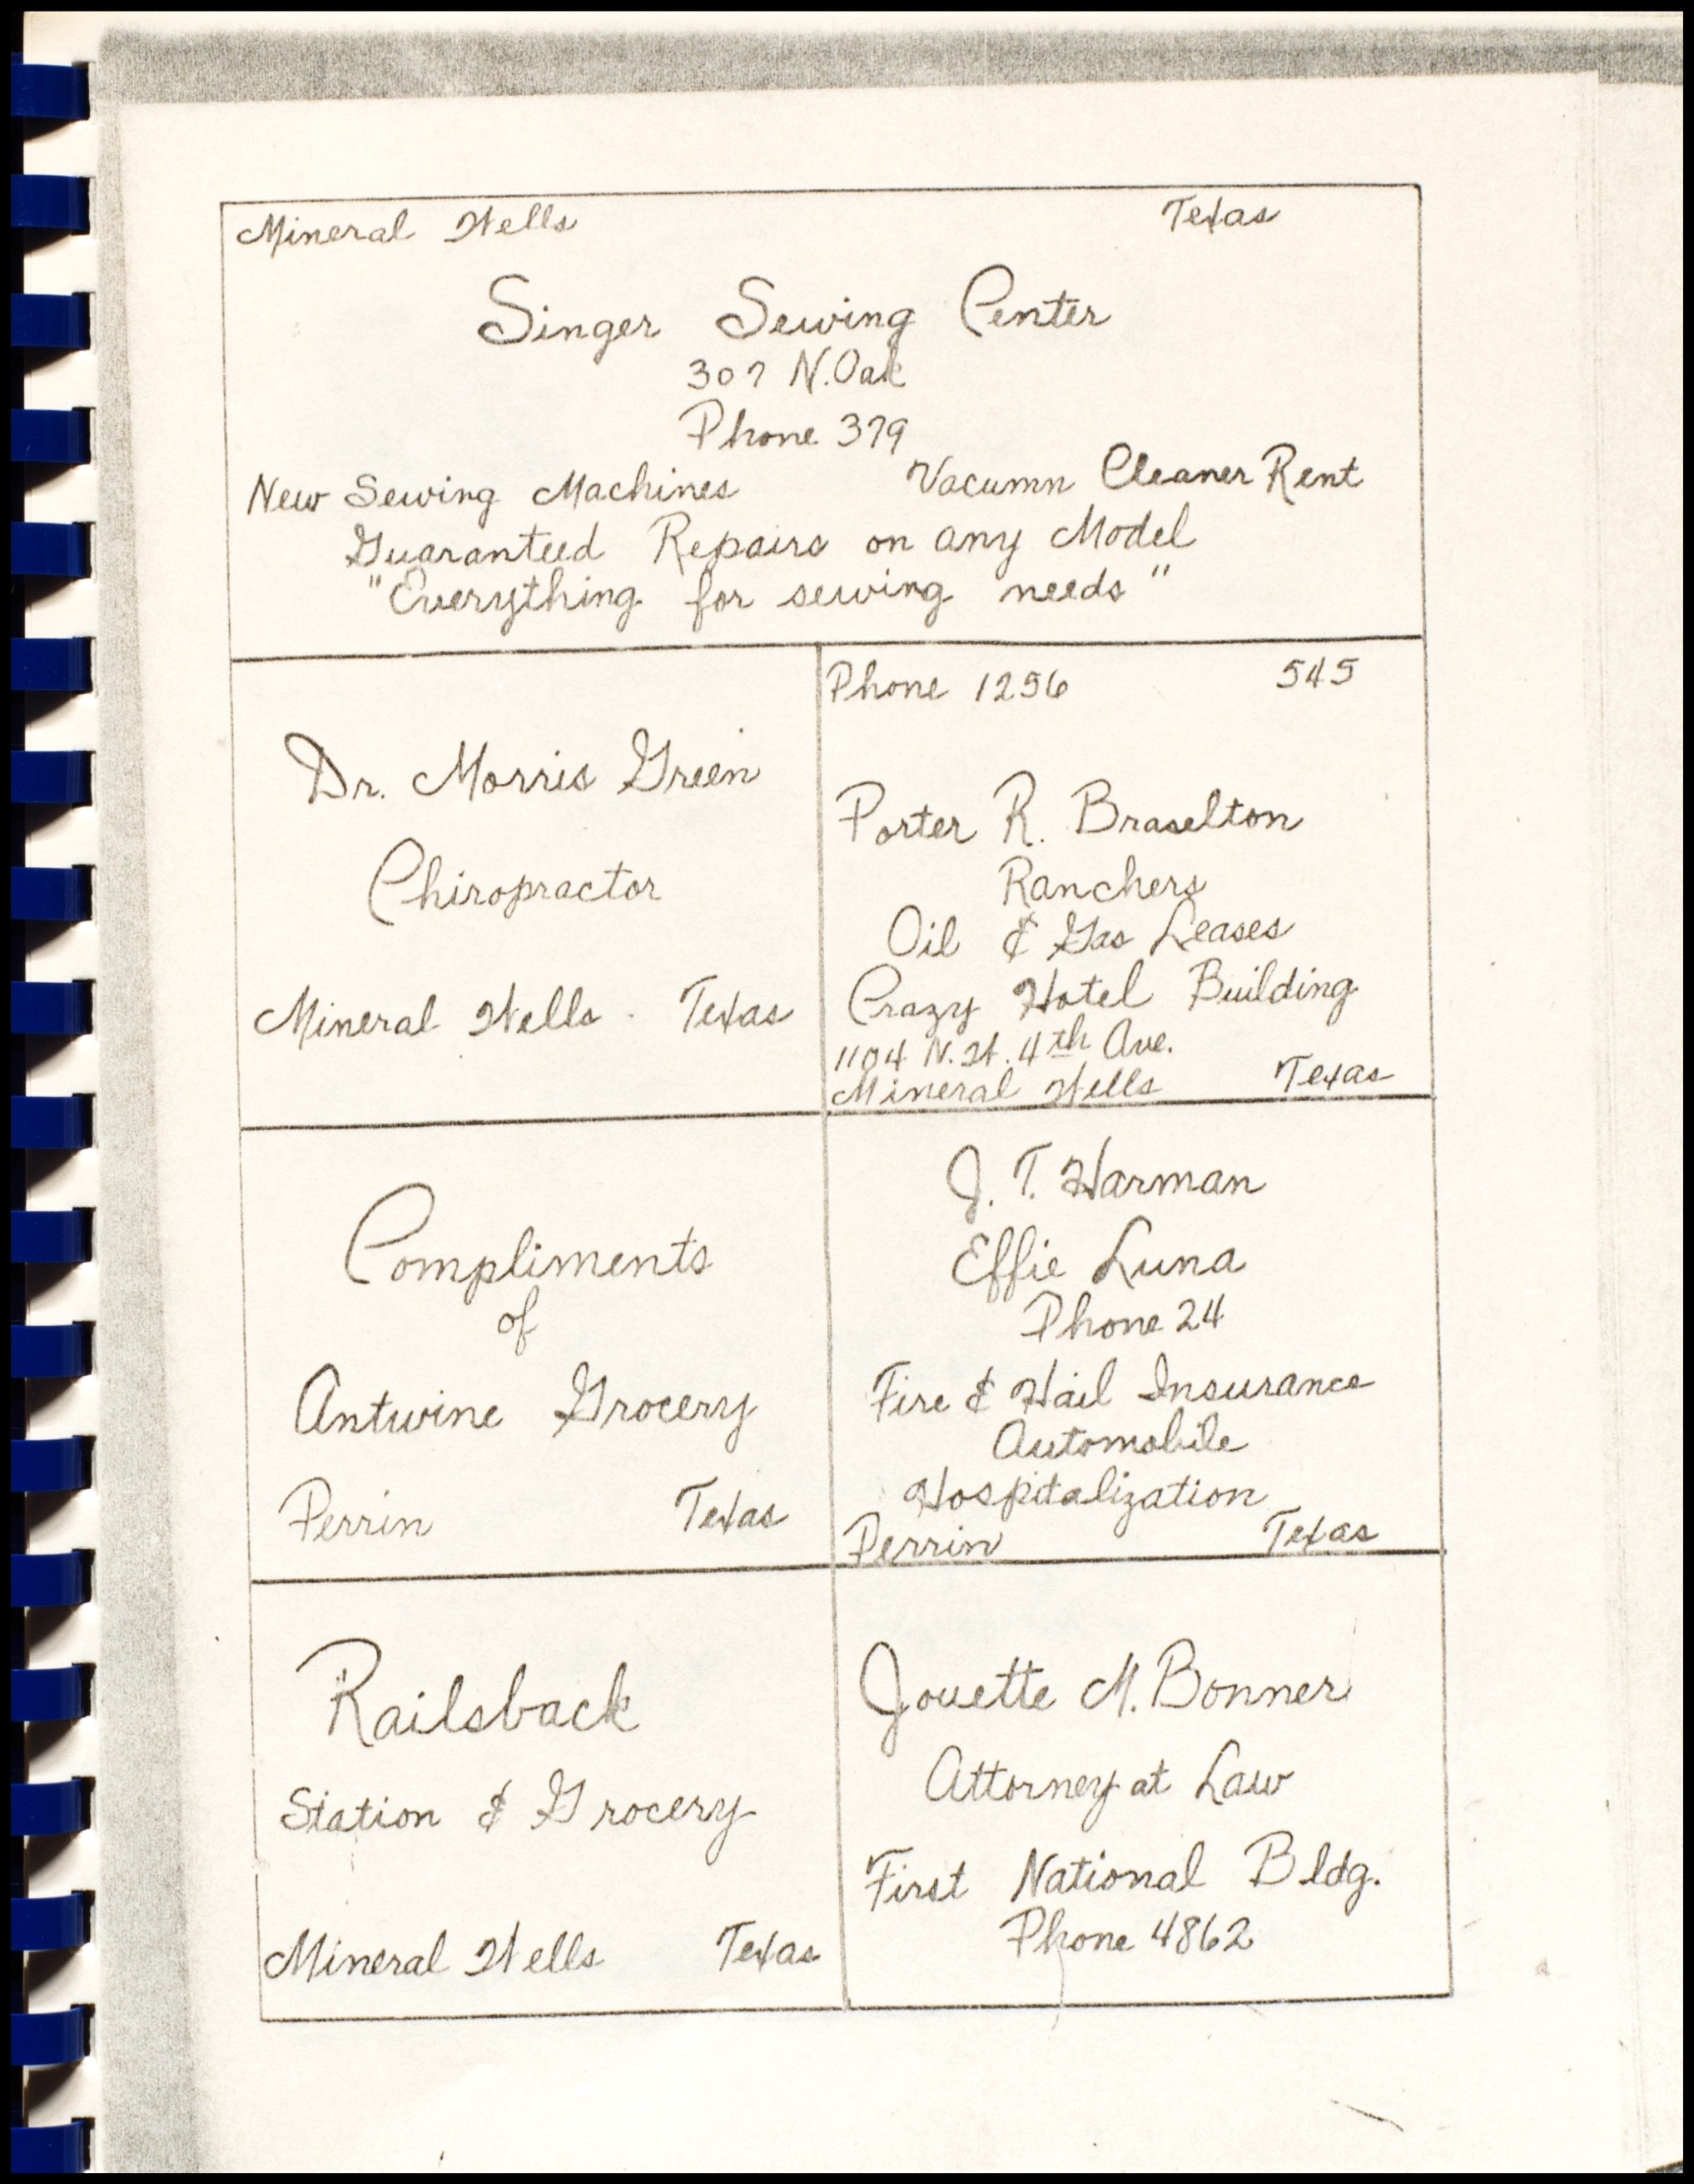 Mineral Wells Texas
Singer Sewing Center
307 N. Oak
Phone 379
New Sewing Machines Vacumn Cleaner Rent
Guaranteed Repairs on any Model
"Everything for sewing needs"
Dr. Morris Green
Chiropractor
Mineral Wells Texas
Phone 1256 545
Porter R. Braselton
Ranchers
Oil & Gas Leases
Crazy Hotel Building
1104 N.W. 4th Ave.
Mineral Wells Texas
Compliments
of
Antwine Grocery
Perrin Texas
J. T. Harman
Effie Luna
Phone 24
Fire & Hail Insurance
Automobile
Hospitalization
Perrin Texas
Railsback
Station & Grocery
Mineral Wells Texas
Jouette M. Bonner
Attorney at Law
First National Bldg.
Phone 4862